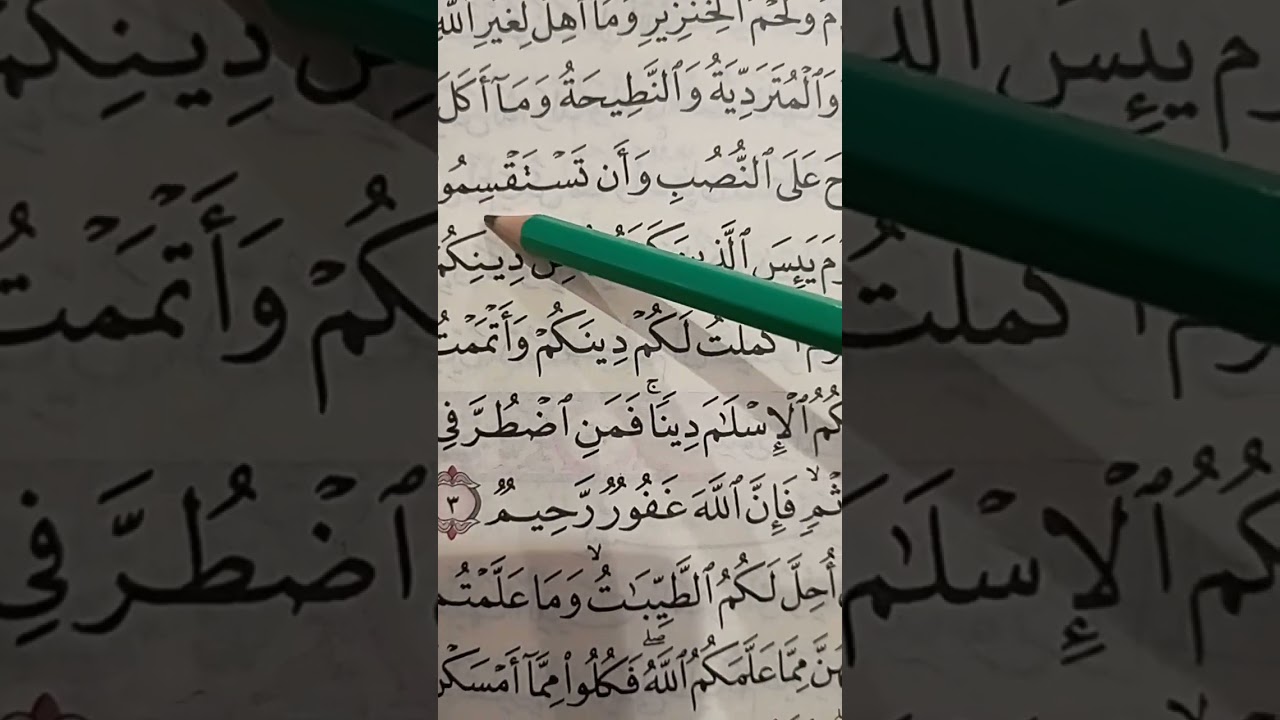 وَلَحْمُ ٱلْخِنزِيرِ وَمَآ أُهِلَّ لِغَيْرِ ٱللَّهِ
وَٱلْمُتَرَدِّيَةُ وَٱلنَّطِيحَةُ وَمَآ أَكَلَ
عَلَى ٱلنُّصُبِ وَأَن تَسْتَقْسِمُوا
يَئِسَ ٱلَّذِينَ دِينِكُمْ
كْمَلْتُ لَكُمْ دِينَكُمْ وَأَتْمَمْتُ
كُمُ ٱلْإِسْلَٰمَ دِينًاۚ فَمَنِ ٱضْطُرَّ فِى
ثْمٍۙ فَإِنَّ ٱللَّهَ غَفُورٌ رَّحِيمٌ ٣
أُحِلَّ لَكُمُ ٱلطَّيِّبَٰتُۙ وَمَا عَلَّمْتُم
هُنَّ مِمَّا عَلَّمَكُمُ ٱللَّهُۖ فَكُلُوا۟ مِمَّآ أَمْسَكْنَ